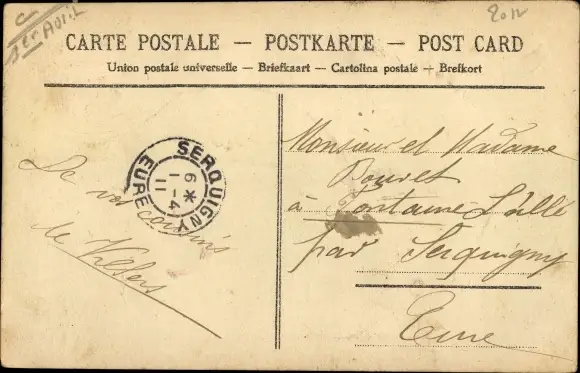 1er Avril
2012
CARTE POSTALE — POSTKARTE — POST CARD
Union postale universelle — Briefkaart — Cartolina postale — Brefkort
Monsieur et Madame
à Fontaine L'allé
par Serquigny
Eure
De vos cousins
de
SERQUIGNY
6 *
1-4
11
EURE